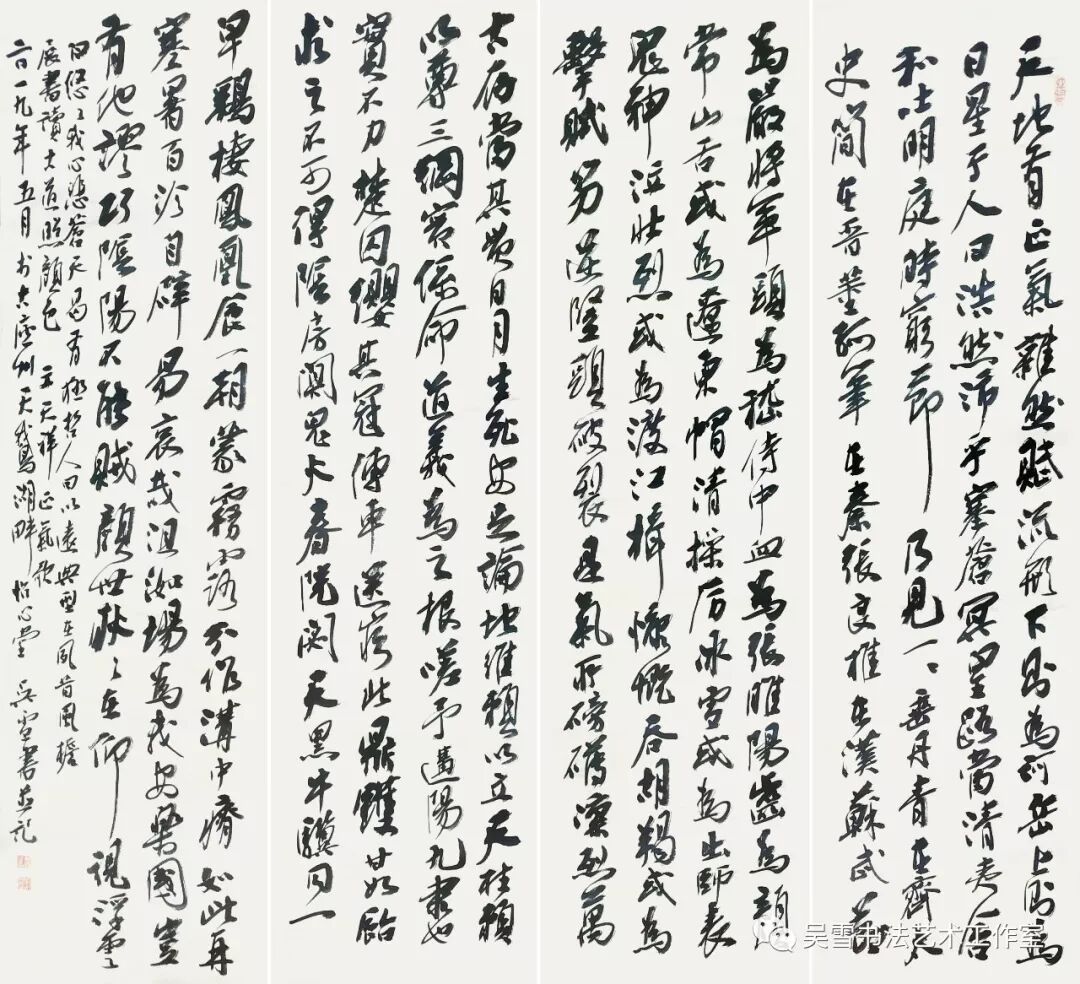 天地有正氣雜然賦流形下則為河岳上則為
日星于人曰浩然沛乎塞蒼冥皇路當清夷含
和吐明庭時窮節乃見一一垂丹青在齊太
史簡在晉董狐筆在秦張良椎在漢蘇武節
為嚴將軍頭為嵇侍中血為張睢陽齒為顏
常山舌或為遼東帽清操厉冰雪或為出師表
鬼神泣壯烈或為渡江楫慷慨吞胡羯或為
擊賊笏逆豎頭破裂是氣所磅礴凜烈萬
古存當其貫日月生死安足論地維賴以立天柱賴
以尊三綱實係命道義為之根嗟予遘陽九隸也
實不力楚囚纓其冠傳車送窮北鼎鑊甘如飴
求之不可得陰房闃鬼火春院閟天黑牛驥同一
皁鷄棲鳳凰食一朝蒙霧露分作溝中瘠如此再
寒暑百沴自辟易哀哉沮洳場為我安樂國豈
有他謬巧陰陽不能賊顧此耿々在仰視浮雲
白悠々我心悲蒼天曷有極哲人日以遠典型在夙昔風檐
展書讀古道照顏色 文天祥正氣歌
二〇一九年五月於古廬州天鵝湖畔怡心堂 吳雪書並記
吴雪书法艺术工作室